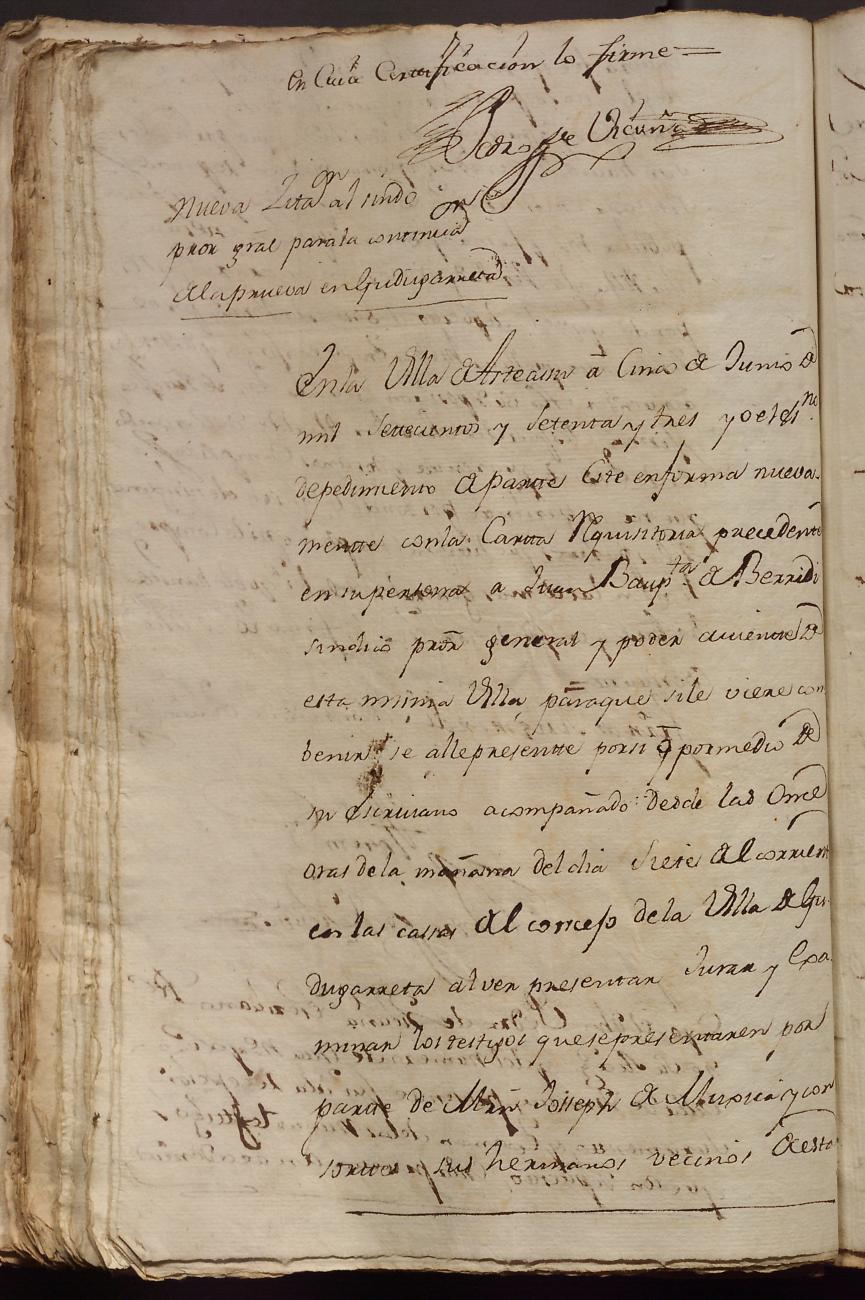 en Cuia Certificacion lo firme =
Pedro de Vicuña
Nueva Zitaon al sindo
pror gral para la continuaon
de la prueva en Gudugarreta
En la Villa de a Cinco de Junio de
mil setecientos y setenta y tres yo el essno
de pedimiento de parte Cite en forma nueva
mentte con la Cartta Rquisitoria precedente
en su persona a Juan Bapta de Berridi
sindico pror general y poder aviente de
esta misma Villa, para que si le viere con
benir se alle presentte por si o por medio de
su escrivano acompañado desde las Once
oras de la mañana del dia siete del corriente
en las cassas del concejo de la Villa de Gu
dugarreta al ver presentar Jurar y Exa
minar los testigos que se presentaren por
parte de Mrn Joseph de y con
sortes sus hermanos vecinos de esta